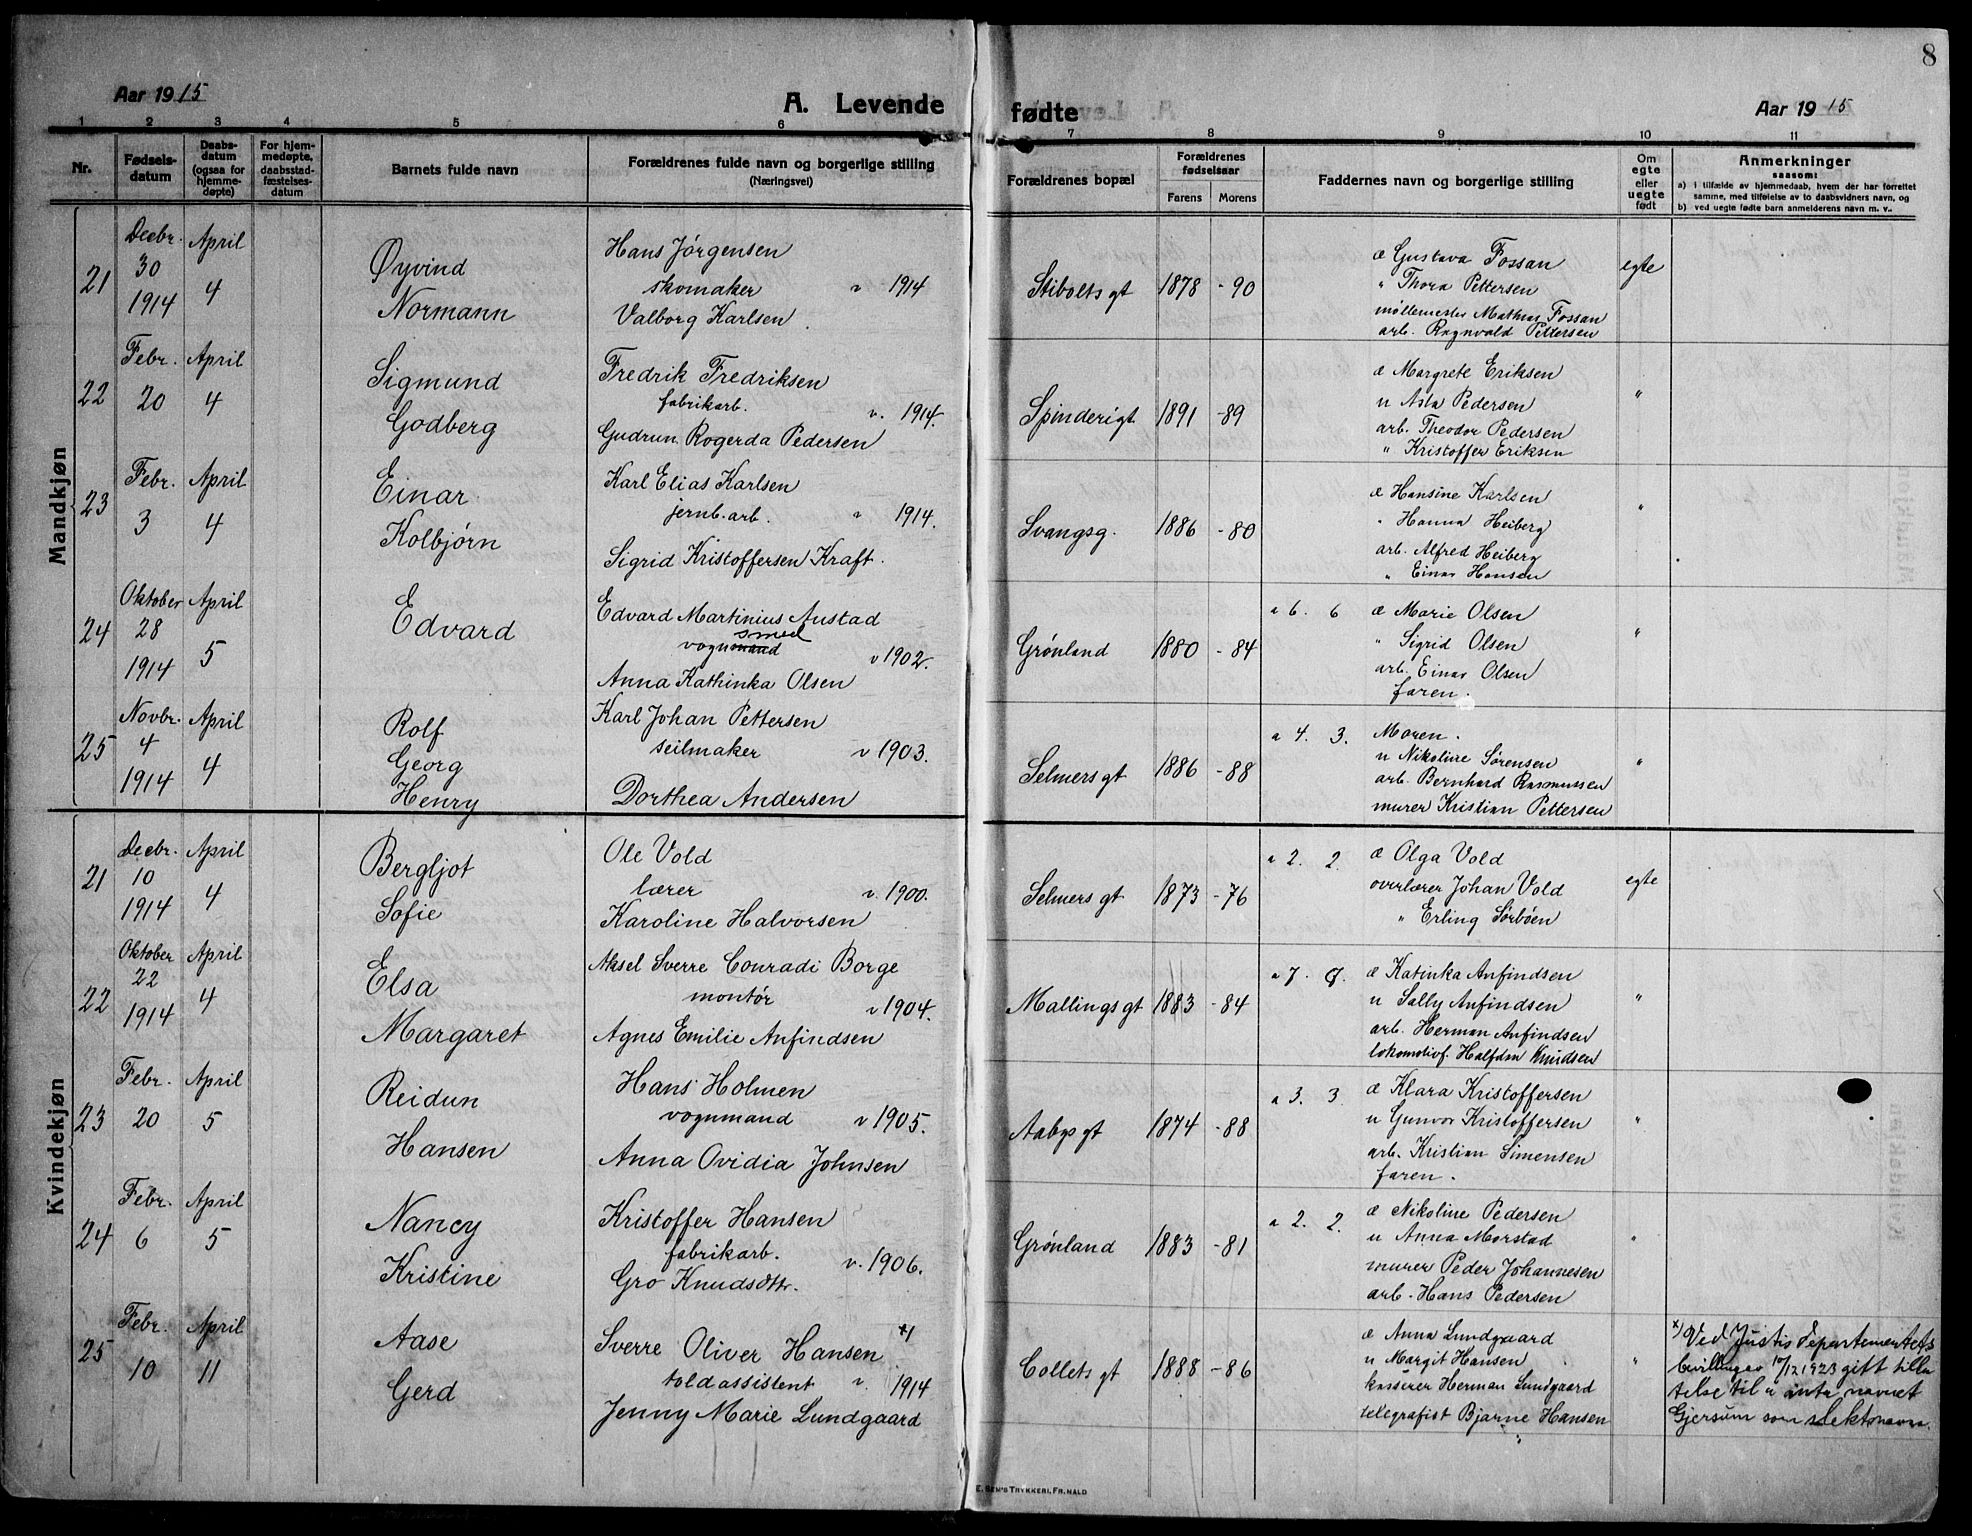 8
Aar 1915
A. Levende fødte
Aar 1915
1 2 3 4 5 6 7 8 9 10 11
Nr.
Fødselsdatum
Daabsdatum (ogsaa for hjemmedøpte)
For hjemmedøpte, daabsstadfæstelsesdatum
Barnets fulde navn
Forældrenes fulde navn og borgerlige stilling (Næringsvei)
Forældrenes bopæl
Forældrenes fødselsaar
Farens Morens
Faddernes navn og borgerlige stilling
Om egte eller uegte født
Anmerkninger
saasom:
a) i tilfælde av hjemmedaab, hvem der har forrettet samme, med tilføielse av to daabsvidners navn, og
b) ved uegte fødte barn anmelderens navn m. v.
Mandkjøn
21
Decbr. 30 1914
April 4
Øyvind
Normann
Hans Jørgensen
skomaker " 1914
Valborg Karlsen
Stibolts gt 1878 - 90
æ Gustava Fossan
" Thora Pettersen
møllemester Mathias Fossan
arb. Ragnvald Pettersen
egte
22
Febr. 20
April 4
Sigmund
Godberg
Fredrik Fredriksen
fabrikarb. v. 1914.
Gudrun Rogerda Pedersen
Spinderigt 1891 - 89
æ Margrete Eriksen
u Asta Pedersen
arb. Theodor Pedersen
" Kristoffer Eriksen
"
23
Febr. 3
April 4
Einar
Kolbjørn
Karl Elias Karlsen
jernb. arb. " 1914.
Sigrid Kristoffersen Kraft.
Svangsg. 1886 - 80
æ Hansine Karlsen
" Hanna Heiberg
arb. Alfred Heiberg
" Einar Hansen
"
24
Oktober 28 1914
April 5
Edvard
Edvard Martinius Austad
smed
vognmand v 1902.
Anna Kathinka Olsen
Grønland 1880 - 84
a 6. 6
æ Marie Olsen
" Sigrid Olsen
arb. Einar Olsen
faren.
"
25
Novbr. 4 1914
April 4
Rolf
Georg
Henry
Karl Johan Pettersen
seilmaker v 1903.
Dorthea Andersen
Selmers gt 1886 - 88
a 4. 3.
Moren.
u Nikoline Sørensen
arb. Bernhard Rasmussen
murer Kristian Pettersen
"
Kvindekjøn
21
Decbr. 10 1914
April 4
Bergljot
Sofie
Ole Vold
lærer v. 1900.
Karoline Halvorsen
Selmers gt 1873 - 76
a 2. 2.
æ Olga Vold
overlærer Johan Vold
" Erling Sørbøen
egte
22
Oktober 22 1914
April 4
Elsa
Margaret
Aksel Sverre Conradi Borge
montør v 1904.
Agnes Emilie Anfindsen
Mallings gt 1883 - 84
a 7.
æ Katinka Anfindsen
u Sally Anfindsen
arb. Herman Anfindsen
lokomotivf. Halfdan Knudsen
"
23
Febr. 20
April 5
Reidun
Hansen
Hans Holmen
vognmand v 1905.
Anna Ovidia Johnsen
Aabys gt 1874 - 88
a 3. 3.
æ Klara Kristoffersen
u Gunvor Kristoffersen
arb. Kristian Simensen
faren.
"
24
Febr. 6
April 5
Nancy
Kristine
Kristoffer Hansen
fabrikarb. v. 1906.
Gro Knudsdtr.
Grønland 1883 - 81
a 2. 2.
æ Nikoline Pedersen
u Anna Morstad
murer Peder Johannesen
arb. Hans Pedersen
"
25
Febr. 10
April 11
Aase
Gerd
Sverre Oliver Hansen x)
toldassistent v. 1914
Jenny Marie Lundgaard
Collets gt 1888 - 86
æ Anna Lundgaard
u Margit Hansen
kasserer Herman Lundgaard
telegrafist Bjarne Hansen
"
x) Ved Justis Departementets
bevilling av 10/12 1923 gitt tilla
telse til å anta navnet
Gjersum som slektsnavn.
E. SEM'S TRYKKERI, FR.HALD